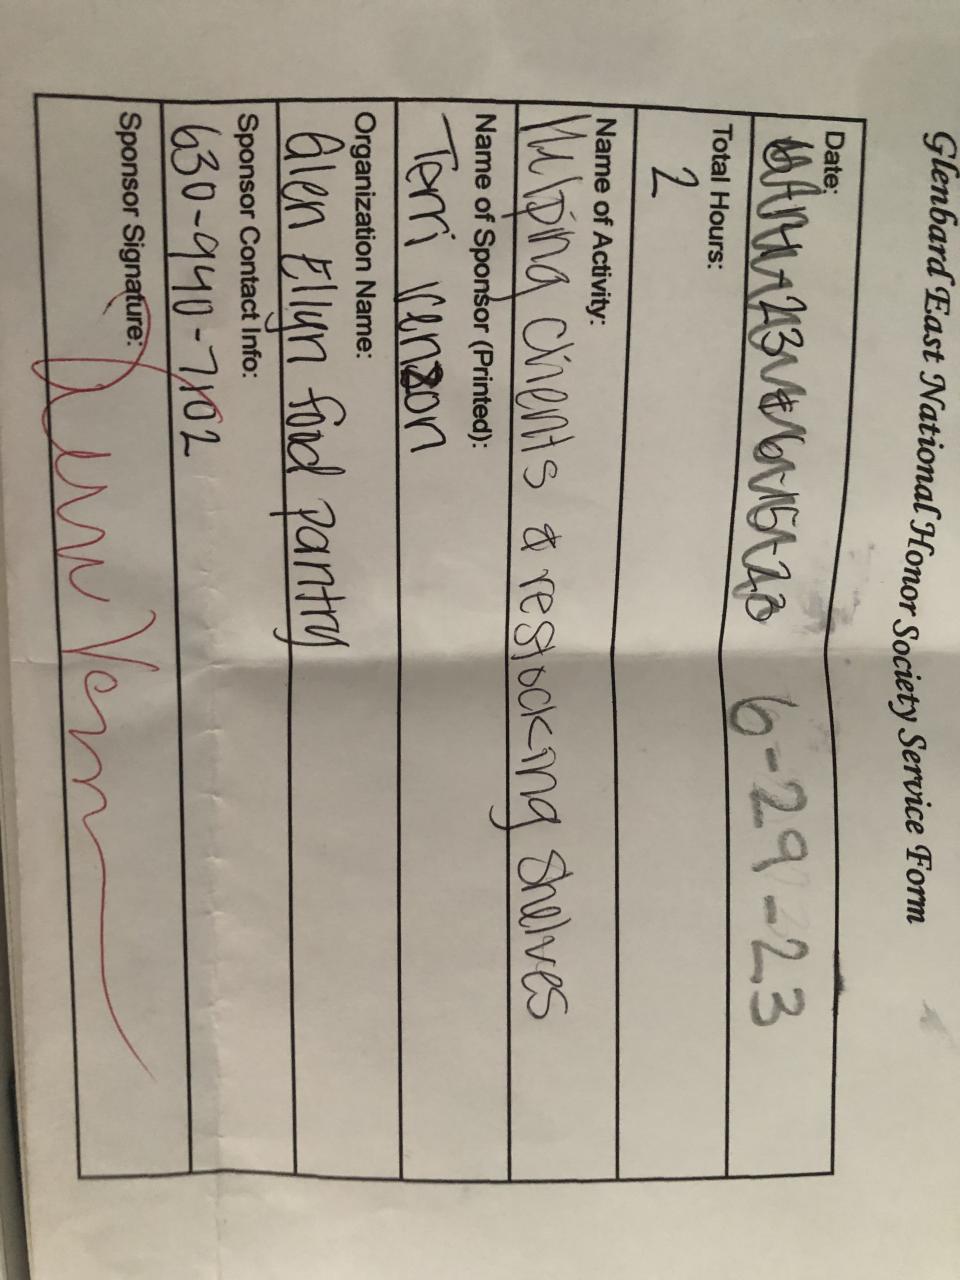 Glenbard East National Honor Society Service Form
Date:
6-29-23
Total Hours:
2
Name of Activity:
Helping clients & restocking shelves
Name of Sponsor (Printed):
Terri
Organization Name:
Glen Ellyn food pantry
Sponsor Contact Info:
630-940-7102
Sponsor Signature: